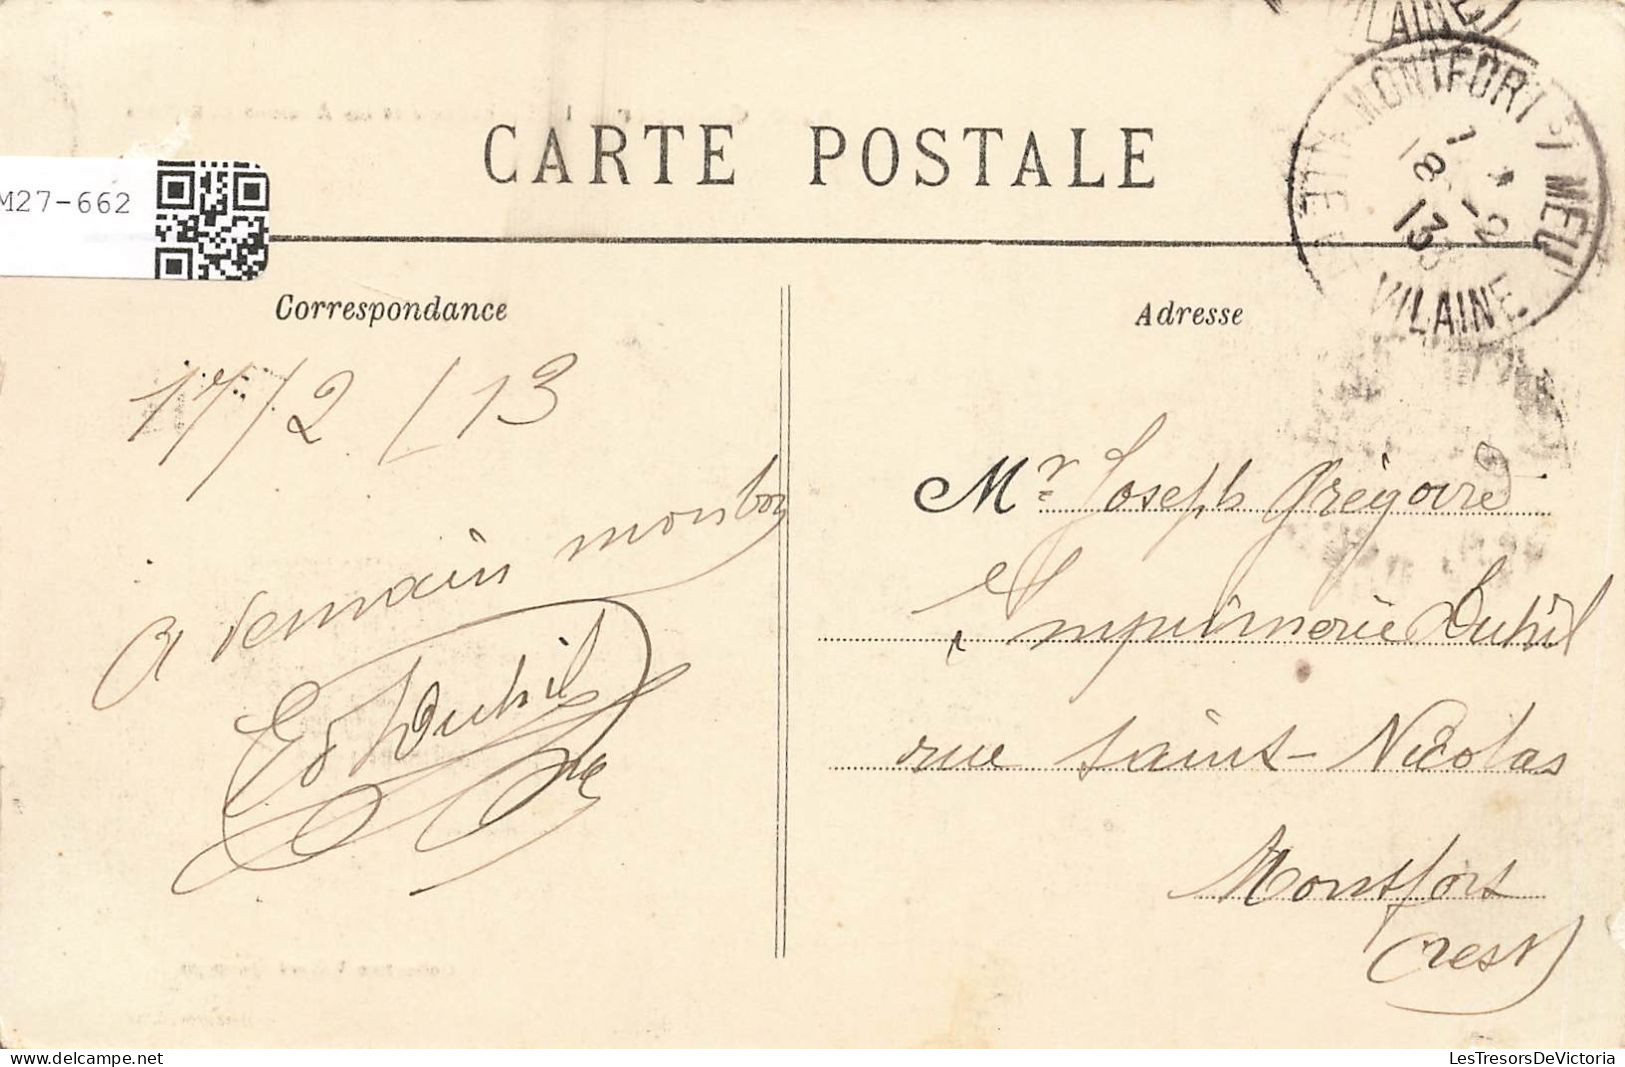 VILAINE
MONTFORT S/ MEU
7
18 -2
13
VILAINE
CARTE POSTALE
M27-662
Correspondance
Adresse
17/2/13
A demain mon bon
Ed Duhil
Mr Joseph Grégoire
Imprimerie Duhil
rue Saint-Nicolas
Montfort
LesTresorsDeVictoria
delcampe.net